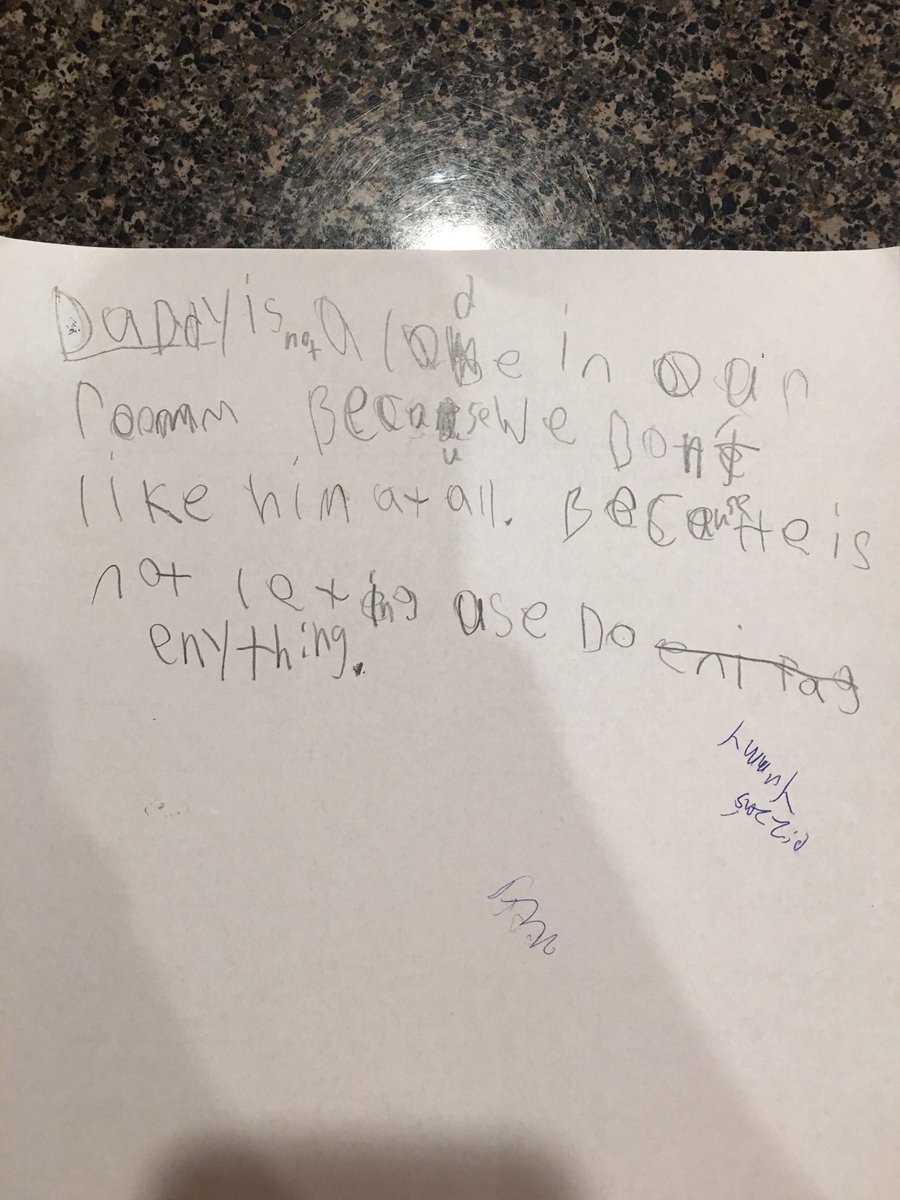 Daddy is not a lowde in a ain
roomm Because We Don't
like him at all. Because He is
not leting ase Do eni tag
enything.